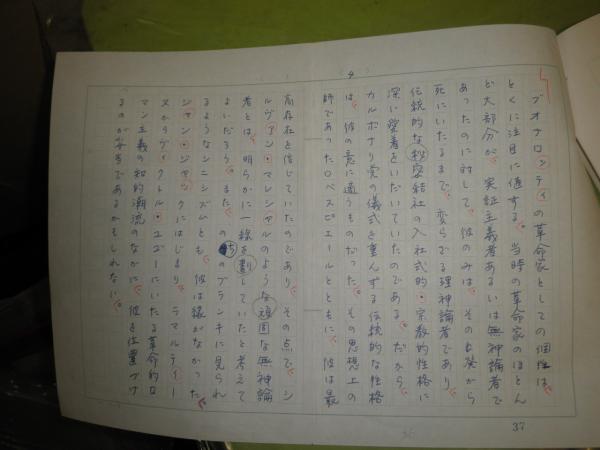 ブオナロッティの革命家としての個性は、
とくに注目に値する。当時の革命家のほとん
ど大部分が、実証主義者あるいは無神論者で
あったのに対して、彼のみは、その出発から
死にいたるまで、変らざる理神論者であり、
伝統的な秘密結社の入社式的・宗教的性格に
深い愛着をいだいていたのである。だから、
カルボナリ党の儀式を重んずる伝統的な性格
は、彼の意に適うものだった。その思想上の
師であったロベスピエールとともに、彼は最
高存在を信じていたのであり、その点で、シ
ルヴァン・マレシャルのような頑固な無神論
者とは、明らかに一線を劃していたと考えて
よいだろう。また、のちのブランキに見られ
るようなシニシズムとも、彼は縁がなかった。
ジャン・ジャックにはじまり、ラマルティー
ヌからヴィクトル・ユゴーにいたる革命的ロ
マン主義の知的潮流のなかに、彼を位置づけ
るのが妥当であるかもしれない。
37